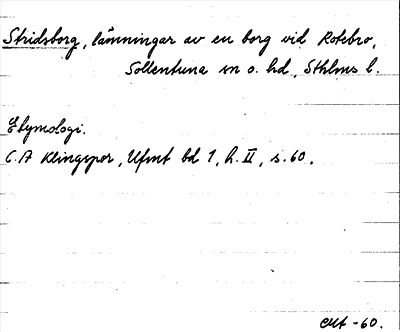 Stridsborg, lämningar av en borg vid Rotebro,
Sollentuna sn o. hd, Sthlms l.
Etymologi.
C. A Klingspor, Ufmt bd 1, h. II, s. 60.
-60.